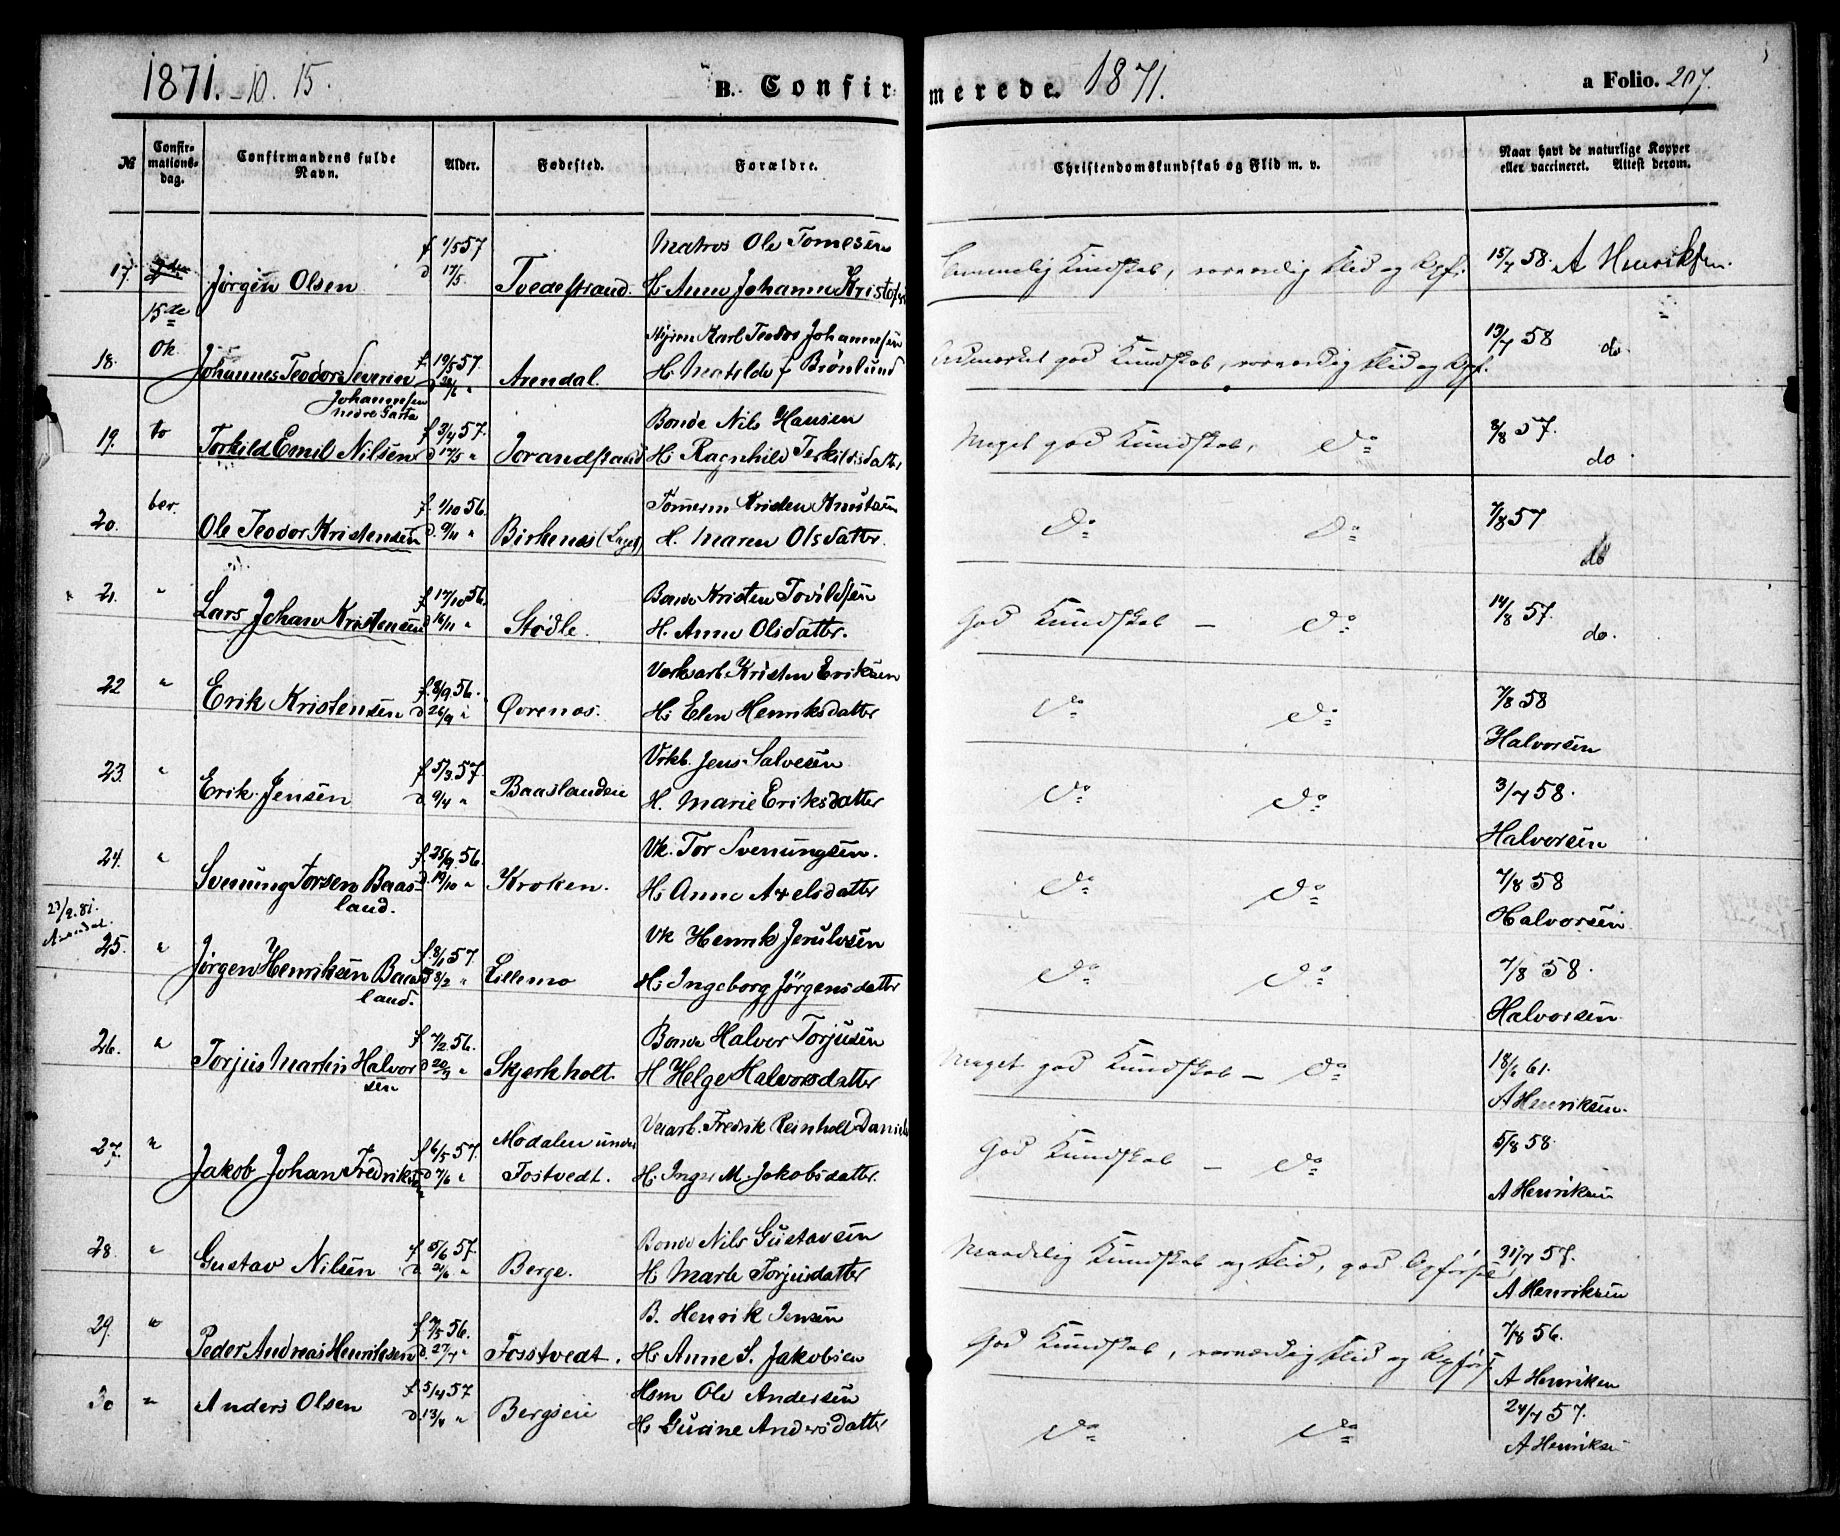 1871. 10. 15.
B. Confirmerede. 1871.
a Folio. 207.
№
Confirmationsdag.
Confirmandens fulde Navn.
Alder.
Fødested.
Forældre.
Christendomskundskab og Flid m. v.
Naar havt de naturlige Kopper eller vaccineret. Attest derom.
17. Jørgen Olsen f 1/5 57 d 17/5. Tvedestrand. Matros Ole Tomesen
H. Anne Johanne Kristofers
Kundskab, Flid og Opf. 15/7 58. A Henriksen.
15de Ok to ber.
18. Johannes Teodor Severin Johannessen f 19/5 57. Arendal. Karl Teodor Johannessen
H. Matilde f Brønlund
Udmærket god Kundskab, Flid og Opf. 13/7 58 do.
19. Torkild Emil Nilsen f 3/4 57. d 17/5 " Bonde Nils Hansen
H: Ragnhild Terkildsdatter
Meget god Kundskab, Do 8/8 57. do.
20. Ole Teodor Kristensen f. 1/10 56. d. 9/11 " Birkenes Tømerm Kristen Knutsen
H. Maren Olsdatter.
Do Do 7/8 57 do
21. " Lars Johan Kristensen f 17/10 56. d 16/11 " Stødle. Bonde Kristen Tovildsen
H. Anne Olsdatter.
God Kundskab — Do 14/8 57. do.
22 " Erik Kristensen f. 8/9 56. d 26/9 " Øvrenes. Verksarb. Kristen Eriksen
H: Elen Henriksdatter
Do Do 7/8 58 Halvorsen
23. " Erik Jensen f 5/3 57. d. 9/4 " Baaslanden Vrkb. Jens Salvesen
H. Marie Eriksdatter
Do Do 3/7 58. Halvorsen
24. " Svenung Torsen Baasland. f 25/9 56. d. 19/10 " Kroken. Vk. Tor Svenungsen.
H: Anne Axelsdatter
Do Do 7/8 58 Halvorsen
23/2.81. Arendal
25. " Jørgen Henriksen Baasland. f. 8/1 57. d 8/2 " Lillemo Vk Henrik Jerulvsen
H: Ingeborg Jørgensdatter
Do Do 7/8 58. Halvorsen
26. " Torjus Martin Halvorsen f 7/2 56. d 20/3 " Skjerkholt. Bonde Halvor Torjusen
H Helge Halvorsdatter
Meget god Kundskab — Do 61. A Henriksen.
27. " Jakob Johan Fredriksen f 6/5 57. d 7/6 " Modalen under Fostvedt. Fredrik Reinholt Daniels
H. Inger M. Jakobsdatter.
God Kundskab — Do 5/8 58. A Henriksen
28. " Gustav Nilsen f 5/6 57. d 21/6 " Berge. Bonde Nils Gustavsen
H Marte Torjusdatter
Maadelig Kundskab og Flid, god Opførsel 31/7 57. A Henriksen
29. " Peder Andreas Henriksen d. 27/7 " Fosstvedt. B. Henrik Jensen
H: Anne S. Jakobsen
God Kundskab, Flid og Opførs. 7/8 56. A Henriken
30 " Anders Olsen f 5/4 57 d 13/4 " Bergseie Hsm Ole Andersen
H: Guane Andersdatter
Do Do 24/7 57. A Henriksen